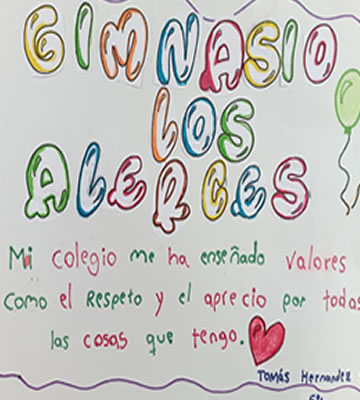 GIMNASIO
LOS
ALERCES
Mi colegio me ha enseñado valores
como el Respeto y el aprecio por todas
las cosas que tengo.
Tomás Hernandez